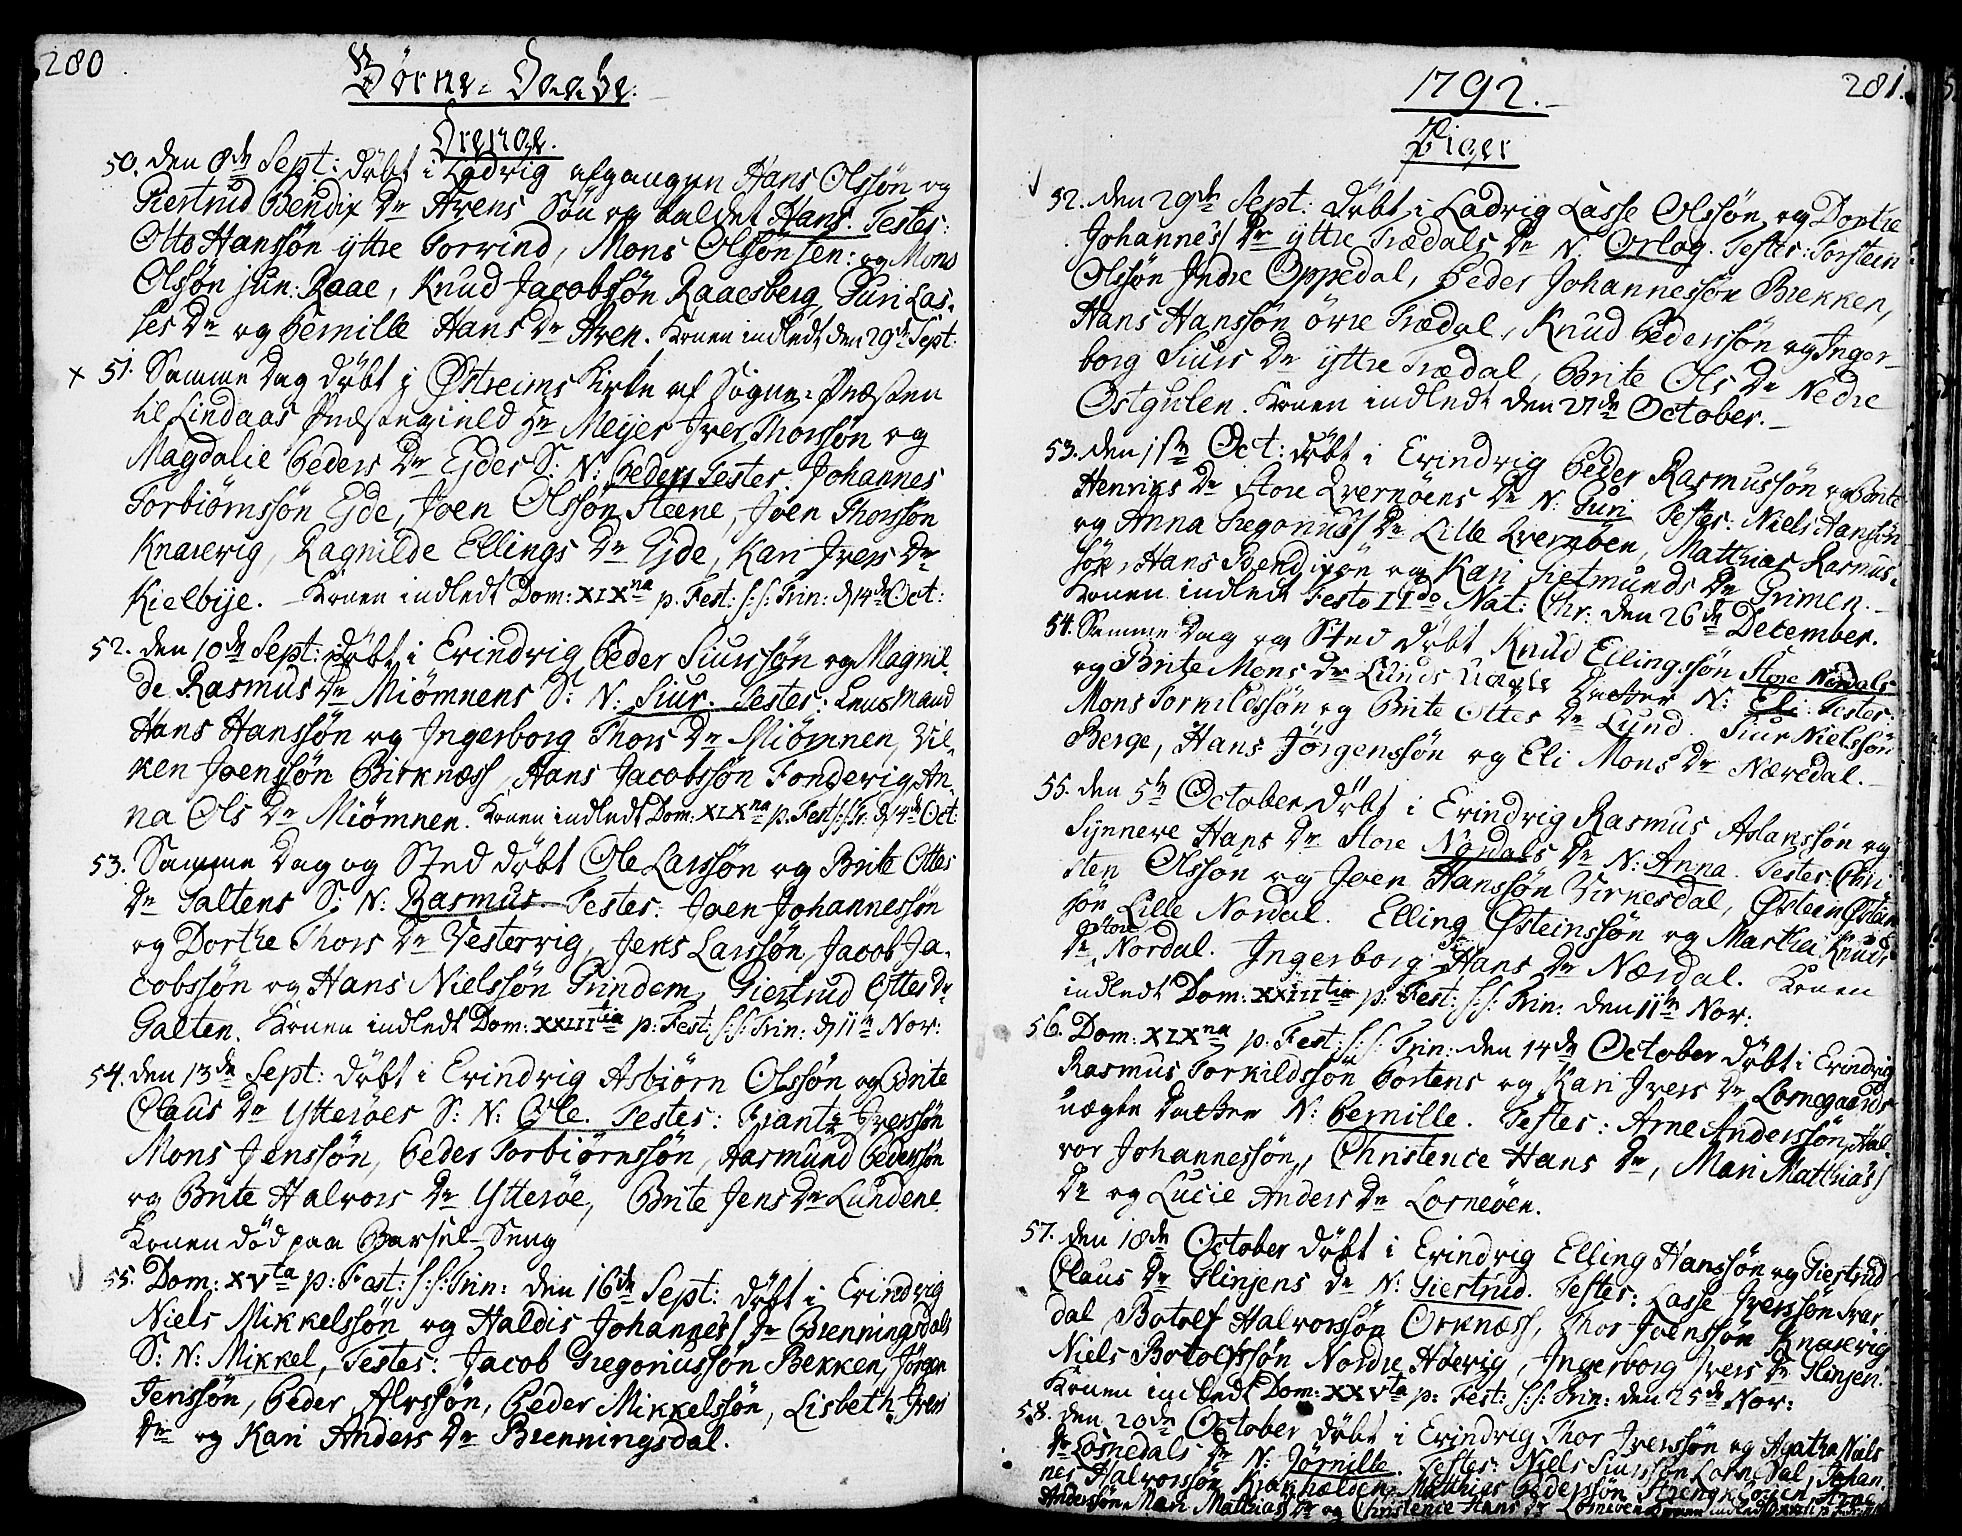 280
Børne-Daabe.
Drenge.
50. den 8de Sept: døbt i Ladvig afgangen Hans Olssøn og
Giertrud Bendix Dr Arens Søn og kaldet Hans. Testes:
Otto Hanssøn yttre Torvind, Mons Olssøn sen: og Mons
Olssøn jun: Raae, Knud Jacobssøn Raaesberg, Guri Las-
ses Dr og Pernille Hans Dr Aren. Konen indledt den 29de Sept:
x 51. Samme Dag døbt i Østreims Kirke af Sogne-Præsten
til Lindaas Præstegield Hr Meyer Iver Thorssøn og
Magdalie Peders Dr Eides S: N: Peder, Testes: Johannes
Torbiørnssøn Eide, Joen Olssøn Steene, Joen Thorssøn
Knarrvig, Ragnilde Ellings Dr Eide, Kari Ivers Dr
Kielbye. Konen indledt Dom: XIXna p. Fest: s: s: Trin: d 14de Oct:
52. den 10de Sept: døbt i Evindvig Peder Siurssøn og Magnil-
de Rasmus Dr Miømnens S: N: Siur. Testes: Lensmand
Hans Hanssøn og Ingerborg Thors Dr Miømnen, Vil-
ken Joenssøn Birknæss, Hans Jacobssøn Fonderig, An-
na Ols Dr Miømnen. Konen indledt Dom: XIXna p. Fest: s: s: Tr: d 14de Oct:
53. Samme Dag og Sted døbt Ole Larssøn og Brite Ottes
Dr Galtens S: N: Rasmus. Testes: Joen Johannessøn
og Dorthe Thors Dr Vesterrig, Jens Larssøn, Jacob Ja-
cobssøn og Hans Nielssøn Grindem, Giertrud Ottes Dr
Galten. Konen indledt Dom: XXIIItia p: Fest: s: s: Trin: d 11te Nor:
54. den 13de Sept: døbt i Evindvig Asbiørn Olssøn og Brite
Claus Dr Ytterøes S: N: Ole. Testes: Frantz Iverssøn
Mons Jenssøn, Peder Torbiørnssøn, Aasmund Pederssøn
og Brite Halvors Dr Ytterøe, Brite Jens Dr Lundene
Konen død paa Barsel-Seng
55. Dom: XVta p: Fest: s: s: Trin: den 16de Sept: døbt i Evindvig
Niels Mikkelssøn og Haldis Johannes's Dr Brenningsdals
S: N: Mikkel, Testes: Jacob Gregoriussøn Bekken, Jørgen
Jenssøn, Peder Alvssøn, Peder Mikkelssøn, Lisbeth Ivers
Dr og Kari Anders Dr Brenningsdal.
1792.
281.
Piger
52. den 29de Sept: døbt i Ladvig Lasse Olssøn og Dorthe
Johannes's Dr yttre Trædals Dr N. Orlog. Testes: Torstein
Olssøn Indre Oppedal, Peder Johannessøn Brekken,
Hans Hanssøn øvre Trædal, Knud Pederssøn og Inger-
borg Siurs Dr yttre Trædal, Brite Ols Dr Nedre
Ostgulen. Konen indledt den 21de October.
53. den 1ste Oct: døbt i Evindvig Peder Rasmussøn og Brite
Henriks Dr store Qvernøens Dr N: Guri Testes: Niels Hanssøn
og Anna Gregorius's Dr Lille Qvernøen, Matthias Rasmus-
søn, Hans Bendixøn og Kari Gietmunds Dr Grimen.
Konen indledt Festo IIdo Nat: Chr: den 26de December.
54. Samme Dag og Sted døbt Knud Ellingssøn Store Nordals
og Brite Mons Dr Lunds uægte Datter N: Eli: Testes:
Mons Torkildssøn og Brite Ottes Dr Lund. Siur Nielssøn
Berge, Hans Jørgenssøn og Eli Mons Dr Næredal.
55. den 5te October døbt i Evindvig Rasmus Aslakssøn og
Synneve Hans Dr Store Nordals Dr N: Anna. Testes: Chri-
sten Olssøn og Joen Hanssøn Virkesdal, Østein Østein-
søn Lille Nordal. Elling Østeinssøn og Martha Knuds
Dr Store Nordal. Ingerborg Hans Dr Nærdal. Konen
indledt Dom: XXIIItia p: Fest: s: s: Trin: den 11te Nor:
56. Dom: XIXna p: Fest: s: s: Trin: den 14de October døbt i Evindvig
Rasmus Torkildssøn Portens og Kari Ivers Dr Losnegaards
uægte Datter N: Pernille. Testes: Arne Anderssøn, Hal-
vor Johannessøn, Christence Hans Dr, Mari Matthias's
Dr og Lucie Anders Dr Losneøen.
57. den 18de October døbt i Evindvig Elling Hanssøn og Giertrud
Claus Dr Slinjens Dr N: Giertrud. Testes: Lasse Iverssøn
dal, Botolf Halvorssøn Orknæss, Thor Joenssøn Knarrvig
Niels Botolfssøn Nordre Høevig, Ingerborg Ivers Dr Slinjen.
Konen indledt Dom: XXVta p: Fest: s: s: Trin: den 25de Nor:
58. den 20de October døbt i Evindvig Thor Iverssøn og Agatha Niels
Dr Losnedals Dr N: Jørnille. Testes: Niels Siurssøn Losnedal, Johan-
nes Halvorssøn Matthias Pederssøn Arne
Anderssøn, Mari Matthias's Dr og Christence Hans Dr Losneøen